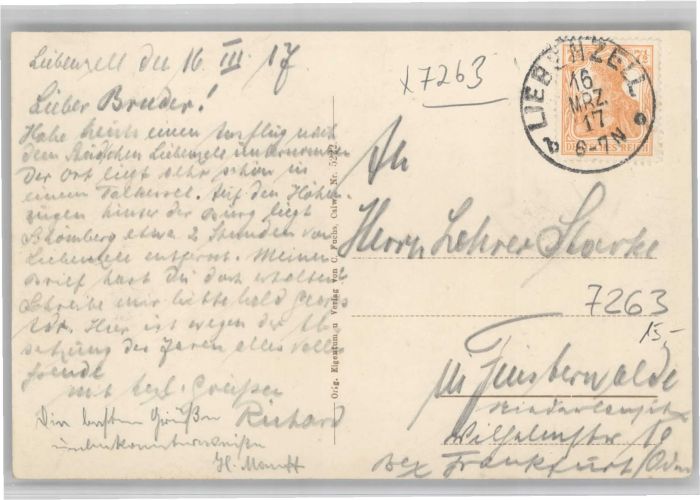 Liebenzell den 16 III 17
Lieber Bruder!
Habe heute einen Ausflug nach
dem Städtchen Liebenzell unternommen
Der Ort liegt sehr schön in
einem Talkessel. Auf den Höhen-
zügen hinter der Burg liegt
Schömberg etwa 2 Stunden von
Liebenzell entfernt. Meinen
Brief hast du doch erhalten?
Schreibe mir bitte bald
Adr. Hier ist wegen der Ab
setzung des Zaren alles voller
Freude
mit herzl. Grüßen
Richard
Die besten Grüßen
unbekannterweise
H.
Orig. Eigentum u Verlag von C. Fuchs, Calw. Nr. 5222
x7263
LIEBENZELL
16
MRZ.
17
6-7N
b
7½
DEUTSCHES REICH
An
Herrn Lehrer Starke
7263
15,-
in Finsterwalde
Niederlausitz
Wilhelmstr 10
Bez Frankfurt/Oder